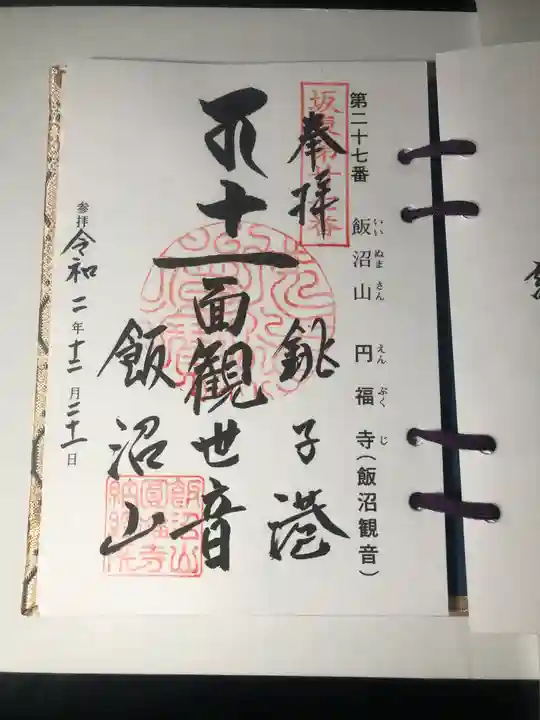 第二十七番 飯沼山 円福寺(飯沼観音)
いいぬまさん えんぷくじ
坂東第廿七番
奉拝
銚子港
十一面観世音
飯沼山
飯沼山
圓福寺
納経所
参拝 令和二年十二月二十一日